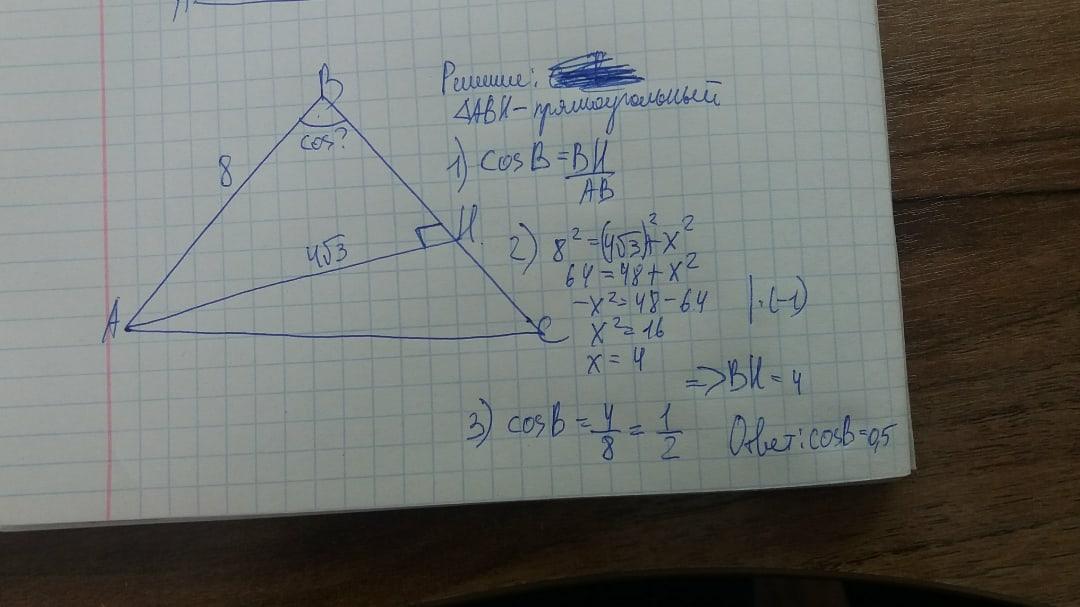 B
cos?
8
H
4√3
A
C
Решение:
△ABH - прямоугольный
1) cos B = BH/AB
2) 8² = (4√3)² + x²
64 = 48 + x²
-x² = 48 - 64 | · (-1)
x² = 16
x = 4
=> BH = 4
3) cosB = 4/8 = 1/2
Ответ: cosB = 0,5